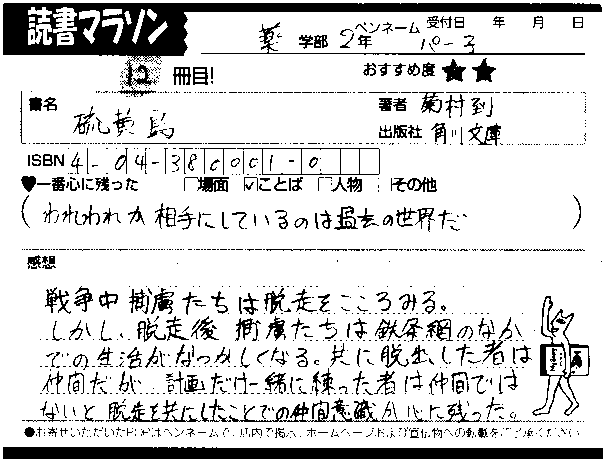 読書マラソン
薬 学部 2年 ペンネーム パー子 受付日 年 月 日
12 冊目! おすすめ度 ★★
書名 硫黄島
著者 菊村到
出版社 角川文庫
ISBN 4-04-380001-0
♥一番心に残った □場面 ☑ことば □人物 □その他
(われわれが相手にしているのは過去の世界だ)
感想
戦争中捕虜たちは脱走をこころみる。
しかし、脱走後捕虜たちは鉄条網のなか
での生活がなつかしくなる。共に脱出した者は
仲間だが 計画だけ一緒に練った者は仲間では
ないと脱走を共にしたことでの仲間意識が心に残った。
●お寄せいただいたPOPはペンネームで、店内で掲示、ホームページおよび宣伝物への転載をご了承ください